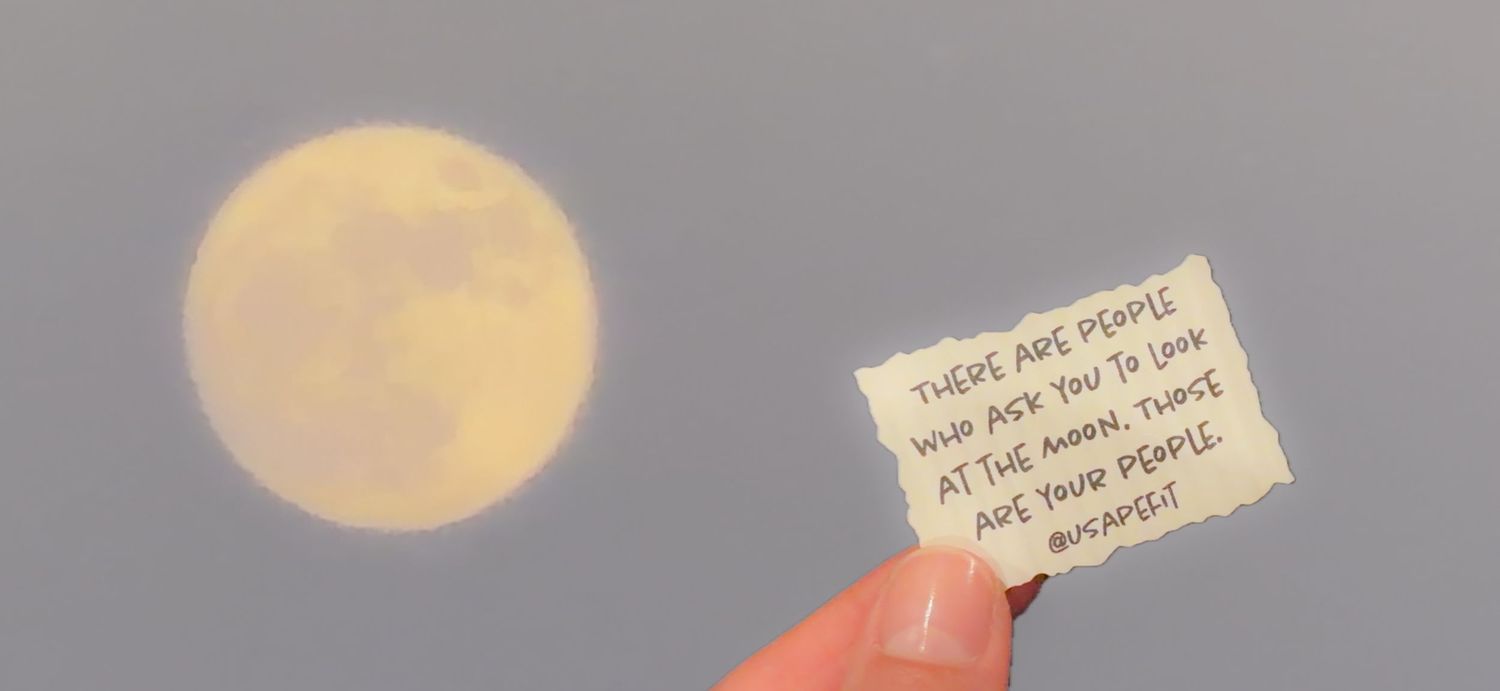 THERE ARE PEOPLE
WHO ASK YOU TO LOOK
AT THE MOON. THOSE
ARE YOUR PEOPLE.
@USAPEFIT